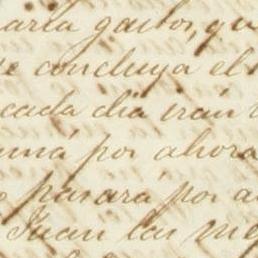 arla gastos, qu
se concluya el
cada dia irán
una por ahora
pasará por a
Juan las me